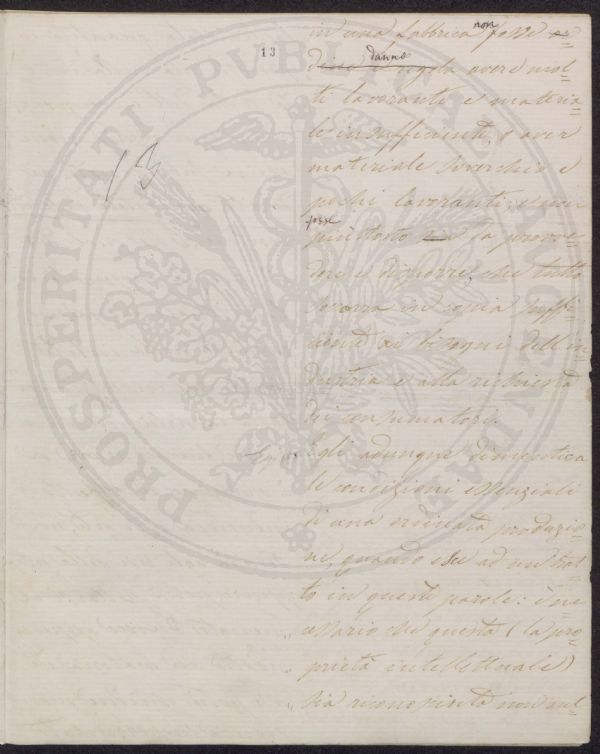 13
13
PROSPERITATI PVBLICAE AVGENDAE
in una fabbrica non fosse
danno avere mol=
ti lavoranti e materia=
le insufficiente, o aver
materiale soverchio e
pochi lavoranti; e non
fosse
piuttosto la provve=
dere e disporre, che tutto
in copia suffi=
ciente ai bisogni dell'in=
dustria e alla richiesta
dei consumatori.
Egli adunque dimentica
le condizioni essenziali
di una ordinata produzio=
ne, quando esce ad un trat=
to in queste parole: è ne
cessario che questa (la pro=
prietà intellettuale)
sia riconosciuta non sul=